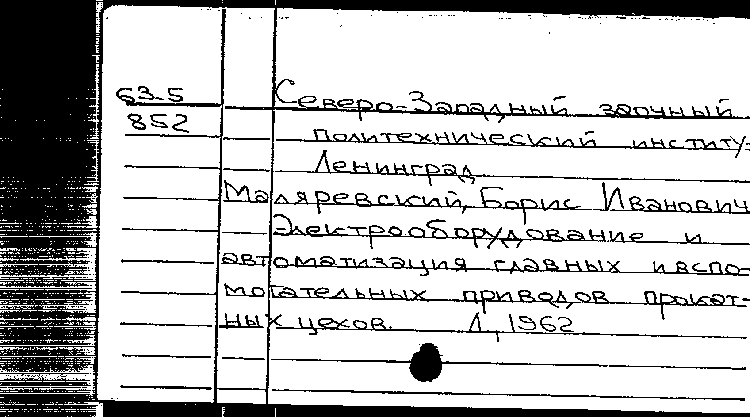 63-5
852
Северо-Западный заочный
политехнический институ-
Ленинград
Маляревский, Борис Иванович
Электрооборудование и
автоматизация главных и вспо-
могательных приводов прокат-
ных цехов. Л, 1962